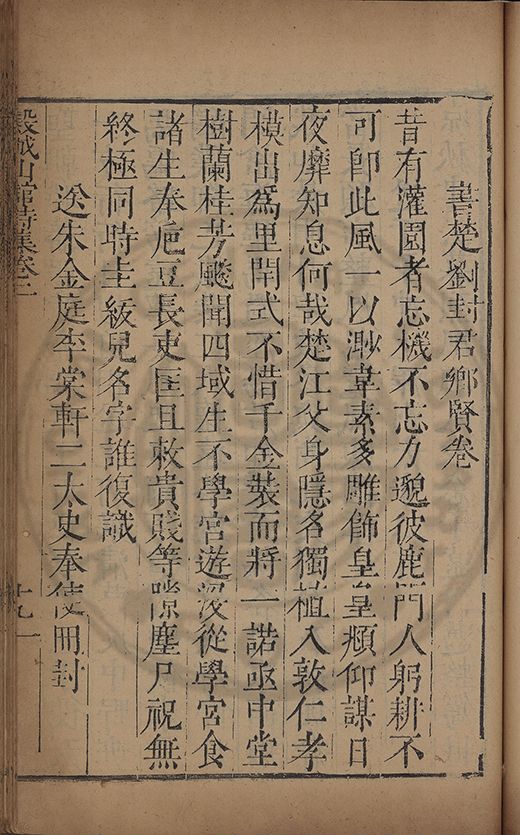 書楚劉封君鄉賢卷
昔有灌園者忘機不忘力邈彼鹿門人躬耕不
可卽此風一以渺韋素多雕飾皇皇頫仰謀日
夜靡知息何哉楚江父身隱名獨植入敦仁孝
模出爲里閈式不惜千金裝而將一諾亟中堂
樹蘭桂芳飈聞四域生不學宮遊沒從學宮食
諸生奉巵豆長吏匡且敕貴賤等隙塵尸祝無
終極同時圭紱兒名字誰復識
送朱金庭李棠軒二太史奉使冊封
穀城山館詩集卷二